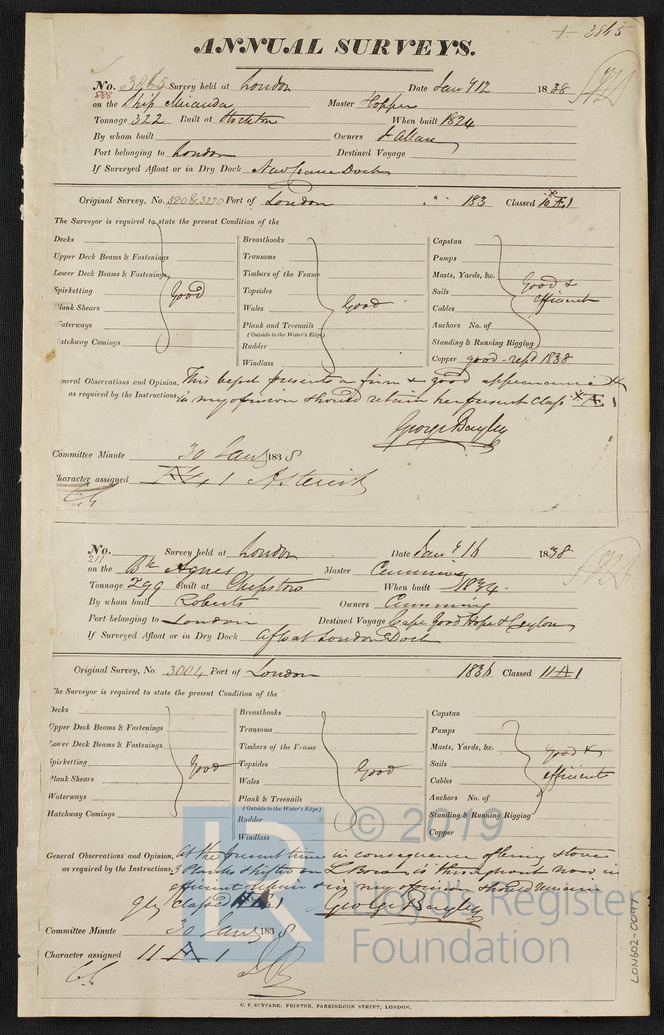 + 3865
ANNUAL SURVEYS.
No. 3865 Survey held at London Date Jany 12 1838
888
on the Ship Miranda Master Hopper
Tonnage 322 Built at Stockton When built 1824
By whom built Owners J Allan
Port belonging to London Destined Voyage
If Surveyed Afloat or in Dry Dock New Crane Dock
Original Survey, No. 580&3220 Port of London 183 Classed
The Surveyor is required to state the present Condition of the
Decks Breasthooks Capstan
Upper Deck Beams & Fastenings Transoms Pumps
Lower Deck Beams & Fastenings Timbers of the Frame Masts, Yards, &c. Good &
Spirketting Good Topsides Sails efficient
Plank Shears Wales Good Cables
Waterways Plank and Treenails Anchors No. of
(Outside to the Water's Edge)
Hatchway Comings Rudder Standing & Running Rigging
Windlass Copper good - repd 1838
General Observations and Opinion, This vessel presents a firm & good appearance &
as required by the Instructions, in my opinion should retain her present Class * Æ 1
George Bayley
Committee Minute 30 Jany 1838
Character assigned 1 Asterisk
No. Survey held at London Date Jany 16 1838
211
on the Bk Agnes Master Cumming
Tonnage 299 Built at Chepstow When built 1834.
By whom built Roberts Owners Cumming
Port belonging to London Destined Voyage Cape Good Hope & Ceylon
If Surveyed Afloat or in Dry Dock Afloat London Dock
Original Survey, No. 3004 Port of London 1836 Classed 11 A 1
The Surveyor is required to state the present Condition of the
Decks Breasthooks Capstan
Upper Deck Beams & Fastenings Transoms Pumps
Lower Deck Beams & Fastenings Timbers of the Frame Masts, Yards, &c. good &
Spirketting Good Topsides Good Sails efficient
Plank Shears Wales Cables
Waterways Plank & Treenails Anchors No. of
(Outside to the Water's Edge)
Hatchway Comings Rudder Standing & Running Rigging
Windlass Copper
General Observations and Opinion, at the present time in consequence of being stove
as required by the Instructions, 3 Planks shifted on L Bow is throughout now in
efficient repair & in my opinion should remain
Classed A 1 George Bayley
Committee Minute 30 Jany 1838
Character assigned 11 A 1
C. F. SEYFANG, PRINTER, FARRINGDON STREET, LONDON.
LON602-0097
© 2019
Lloyd's Register
Foundation
LR